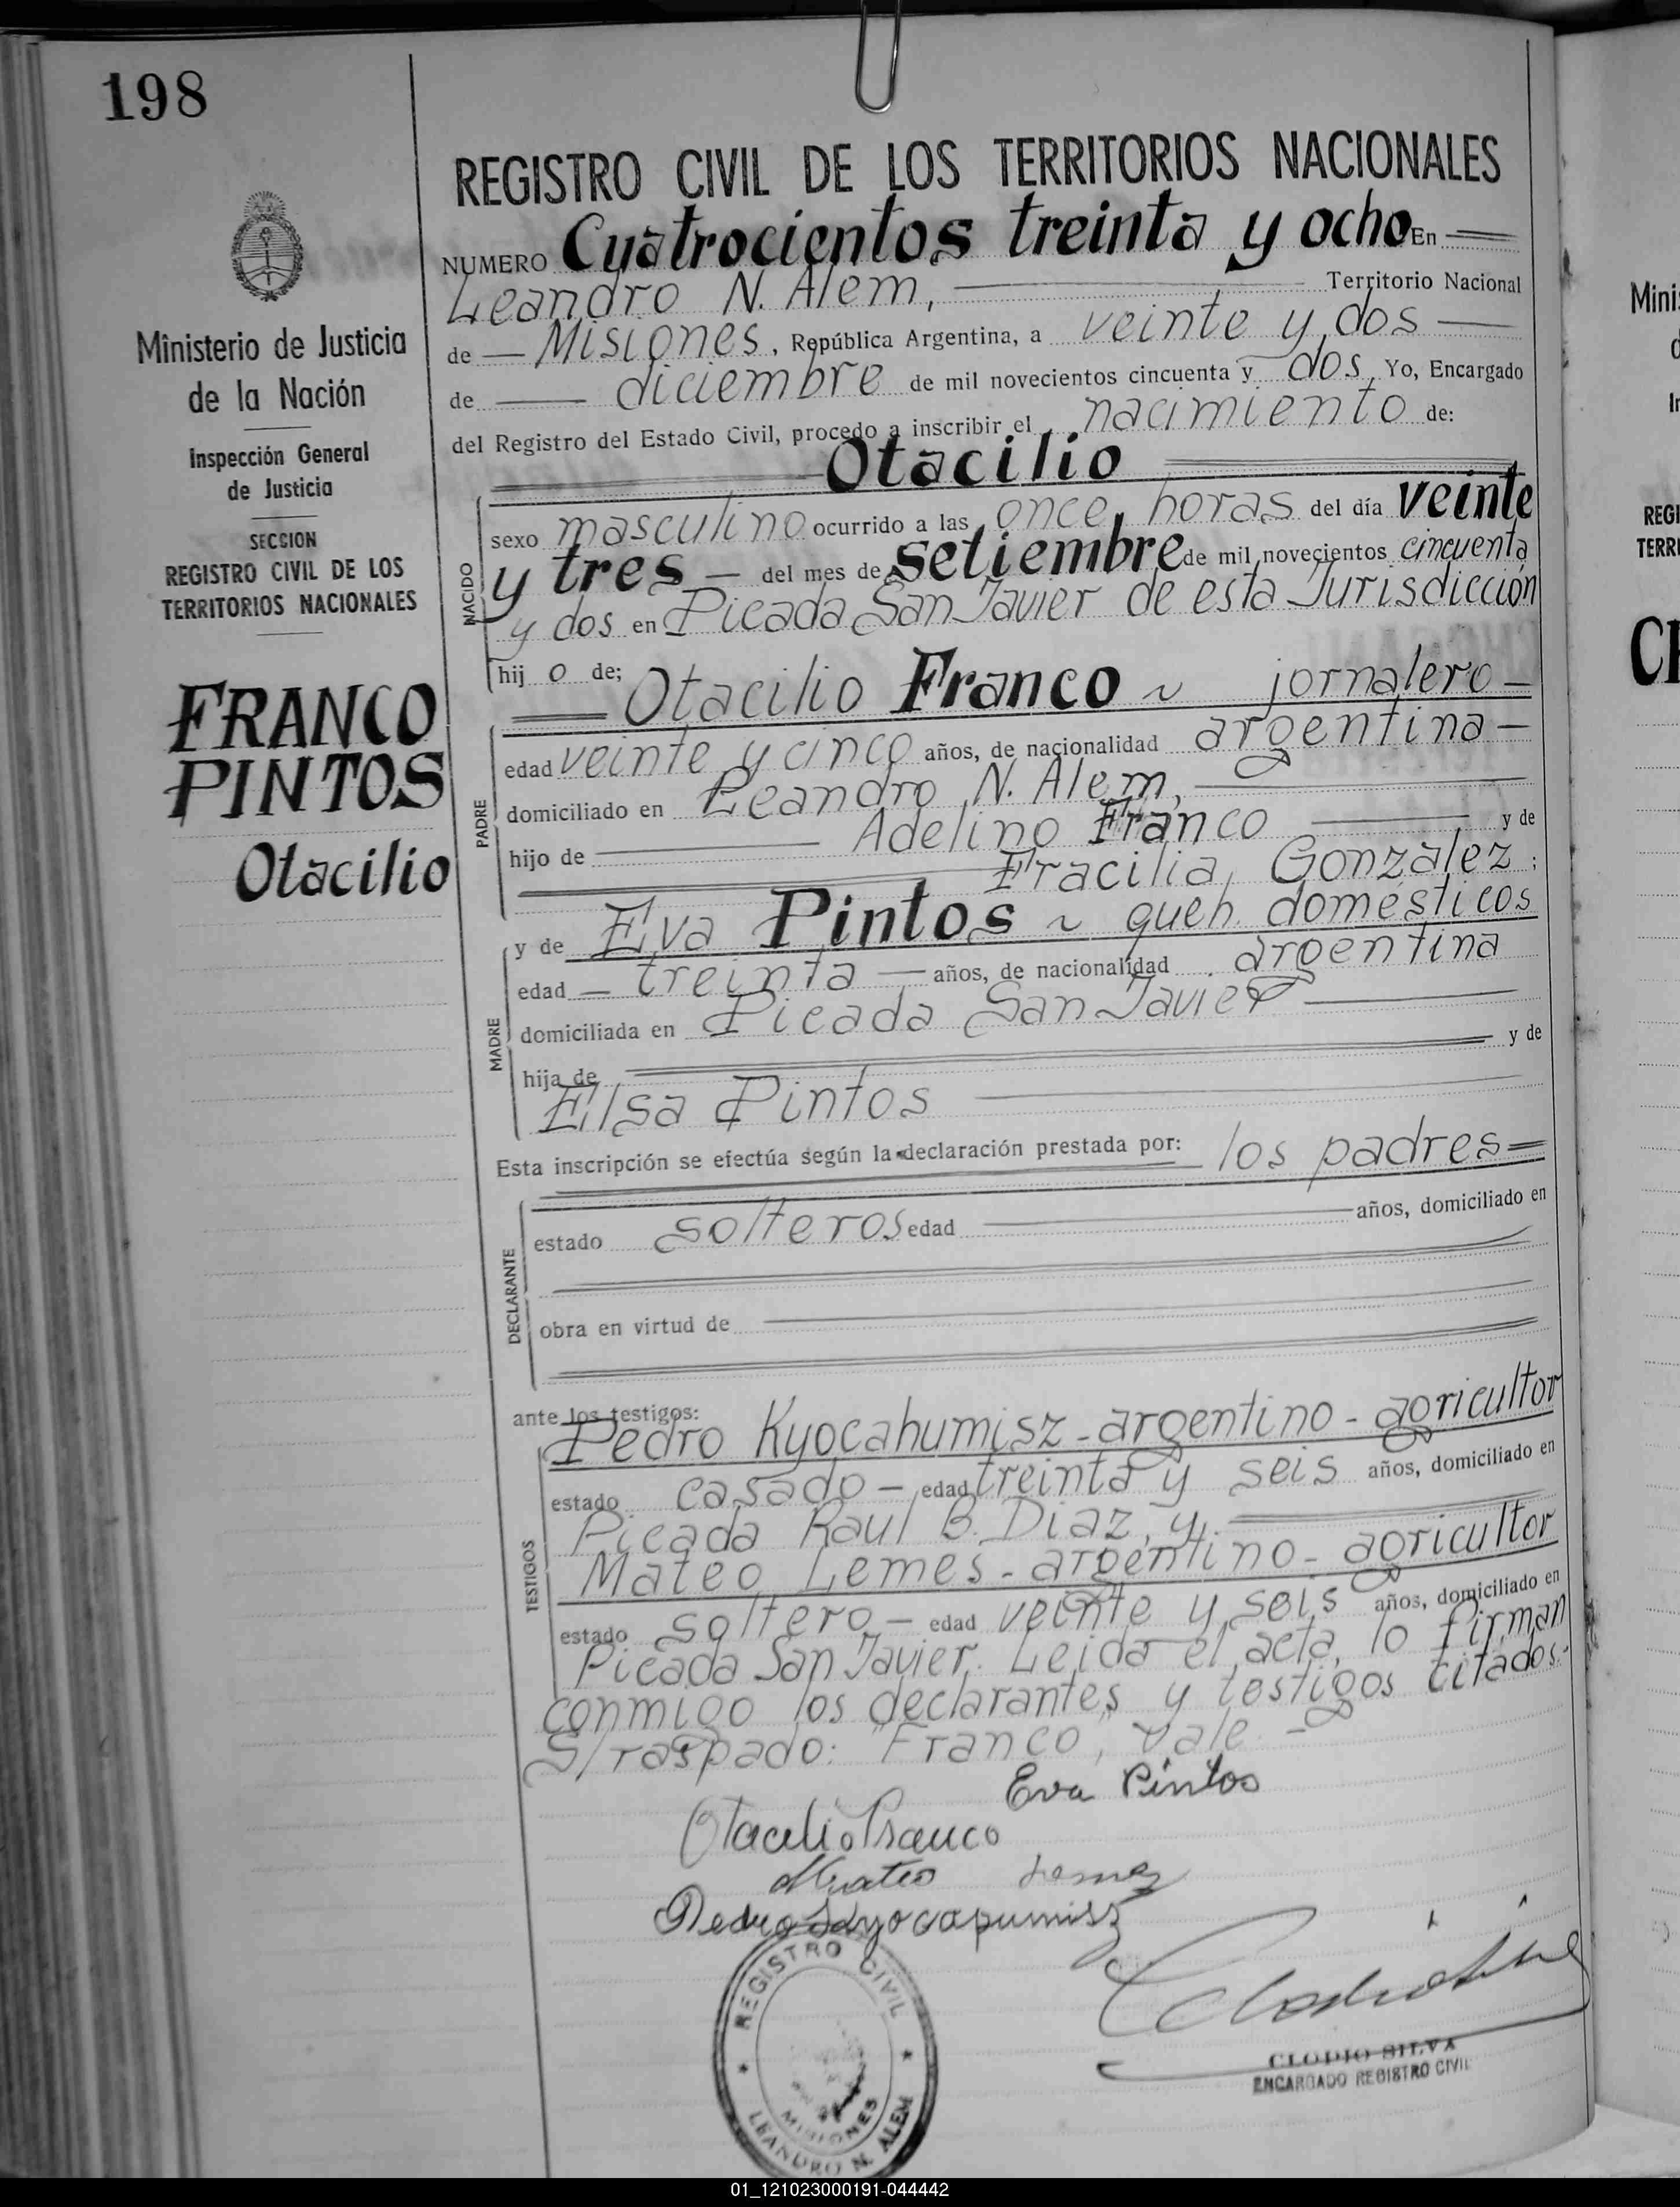 198
Ministerio de Justicia
de la Nación
Inspección General
de Justicia
SECCION
REGISTRO CIVIL DE LOS
TERRITORIOS NACIONALES
FRANCO
PINTOS
Otacilio
REGISTRO CIVIL DE LOS TERRITORIOS NACIONALES
NUMERO Cuatrocientos treinta y ocho En
Leandro N. Alem, Territorio Nacional
de — Misiones, República Argentina, a veinte y dos —
de — diciembre de mil novecientos cincuenta y dos, Yo, Encargado
del Registro del Estado Civil, procedo a inscribir el nacimiento de:
Otacilio
NACIDO
sexo masculino ocurrido a las once horas del día veinte
y tres — del mes de setiembre de mil novecientos cincuenta
y dos en Picada San Javier de esta Jurisdicción
hij o de;
Otacilio Franco ~ jornalero —
PADRE
edad veinte y cinco años, de nacionalidad argentina —
domiciliado en Leandro N. Alem,
hijo de Adelino Franco y de
Fracilia Gonzalez;
y de Eva Pintos ~ queh. domésticos
MADRE
edad — treinta — años, de nacionalidad argentina
domiciliada en Picada San Javier
hija de y de
Elsa Pintos
Esta inscripción se efectúa según la declaración prestada por: los padres=
DECLARANTE
estado solteros edad años, domiciliado en
obra en virtud de
ante los testigos:
Pedro Kyocahumisz - argentino - agricultor
TESTIGOS
estado casado — edad treinta y seis años, domiciliado en
Picada Raul B. Diaz, y
Mateo Lemes - argentino - agricultor
estado soltero — edad veinte y seis años, domiciliado en
Picada San Javier. Leida el acta, lo firman
conmigo los declarantes y testigos citados.-
S/raspado: "Franco", vale.-
Eva Pintos
Otacilio Franco
Mateo Lemes
Pedro
REGISTRO CIVIL
MISIONES
LEANDRO N. ALEM
CLODIO SILVA
ENCARGADO REGISTRO CIVIL
Mini
REGI
TERRI
01_121023000191-044442